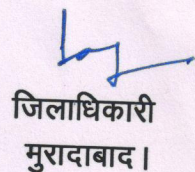 जिलाधिकारी
मुरादाबाद।